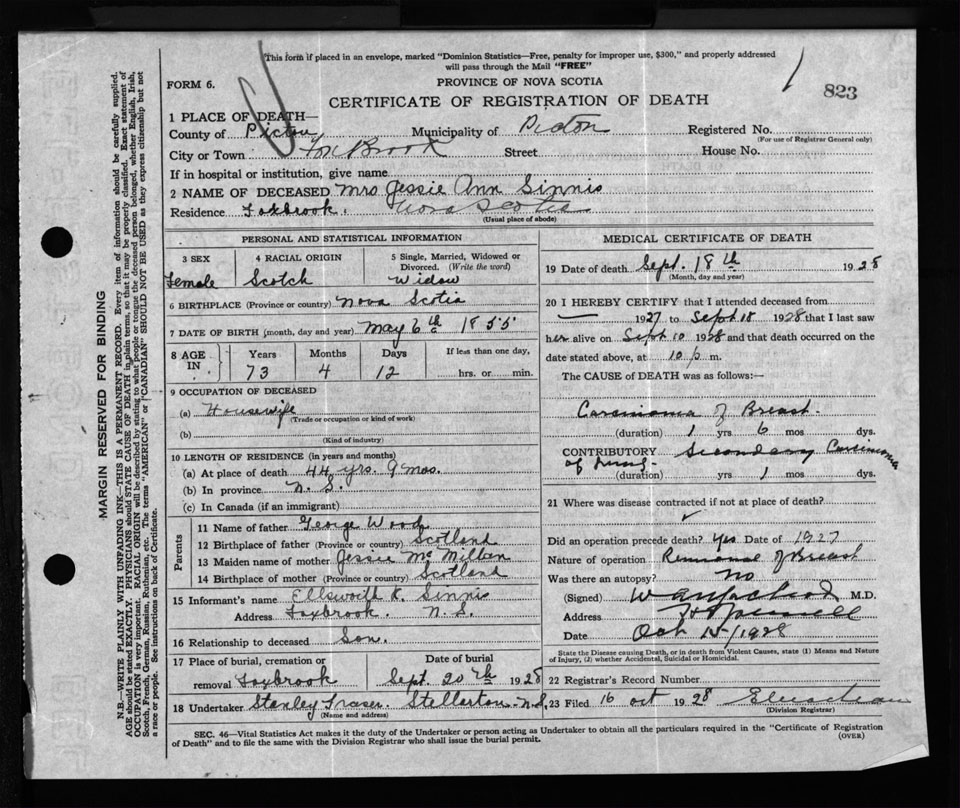 This form if placed in an envelope, marked "Dominion Statistics—Free, penalty for improper use, $300," and properly addressed
will pass through the Mail "FREE"
FORM 6.
PROVINCE OF NOVA SCOTIA
823
CERTIFICATE OF REGISTRATION OF DEATH
1 PLACE OF DEATH—
County of Pictou Municipality of Picton Registered No.
(For use of Registrar General only)
City or Town Fox Brook Street House No.
If in hospital or institution, give name
2 NAME OF DECEASED Mrs Jessie Ann Sinnis
Residence Foxbrook. Nova Scotia
(Usual place of abode)
PERSONAL AND STATISTICAL INFORMATION
3 SEX 4 RACIAL ORIGIN 5 Single, Married, Widowed or
Divorced. (Write the word)
Female Scotch Widow
6 BIRTHPLACE (Province or country) Nova Scotia
7 DATE OF BIRTH (month, day and year) May 6th 1855
8 AGE IN Years Months Days If less than one day,
73 4 12 hrs. or min.
9 OCCUPATION OF DECEASED
(a) Housewife
(Trade or occupation or kind of work)
(b)
(Kind of industry)
10 LENGTH OF RESIDENCE (in years and months)
(a) At place of death 44 yrs. 9 mos.
(b) In province N. S.
(c) In Canada (if an immigrant)
Parents
11 Name of father George Wood
12 Birthplace of father (Province or country) Scotland
13 Maiden name of mother Jessie McMillan
14 Birthplace of mother (Province or country) Scotland
15 Informant's name Ellsworth R. Sinnis
Address Foxbrook. N.S.
16 Relationship to deceased Son.
17 Place of burial, cremation or Date of burial
removal Foxbrook Sept. 20th 1928
18 Undertaker Stanley Fraser. Stellarton. N.S.
(Name and address)
MEDICAL CERTIFICATE OF DEATH
19 Date of death Sept. 18th 1928
(Month, day and year)
20 I HEREBY CERTIFY that I attended deceased from
1927 to Sept 18 1928 that I last saw
her alive on Sept 10 1928 and that death occurred on the
date stated above, at 10 p m.
The CAUSE of DEATH was as follows:—
Carcinoma of Breast.
(duration) 1 yrs 6 mos dys.
CONTRIBUTORY Secondary Carcinoma
of Lung.
(duration) yrs 1 mos dys.
21 Where was disease contracted if not at place of death?
Did an operation precede death? Yes Date of 1927
Nature of operation Removal of Breast
Was there an autopsy? No
(Signed) M.D.
Address Hopewell
Date Oct 15/1928
State the Disease causing Death, or in death from Violent Causes, state (1) Means and Nature
of Injury, (2) whether Accidental, Suicidal or Homicidal.
22 Registrar's Record Number
23 Filed 16 Oct 1928
(Division Registrar)
SEC. 46—Vital Statistics Act makes it the duty of the Undertaker or person acting as Undertaker to obtain all the particulars required in the "Certificate of Registration
of Death" and to file the same with the Division Registrar who shall issue the burial permit.
(OVER)
MARGIN RESERVED FOR BINDING
N.B.—WRITE PLAINLY WITH UNFADING INK—THIS IS A PERMANENT RECORD. Every item of information should be carefully supplied.
AGE should be stated EXACTLY. PHYSICIANS should STATE CAUSE OF DEATH in plain terms, so that it may be properly classified. Exact statement of
OCCUPATION is very important. RACIAL ORIGIN will be described by stating to what people or tongue the deceased person belonged, whether English, Irish,
Scotch, French, German, Russian, Ruthenian, etc. The terms "AMERICAN" or "CANADIAN" SHOULD NOT BE USED as they express citizenship but not
a race or people. See instructions on back of Certificate.